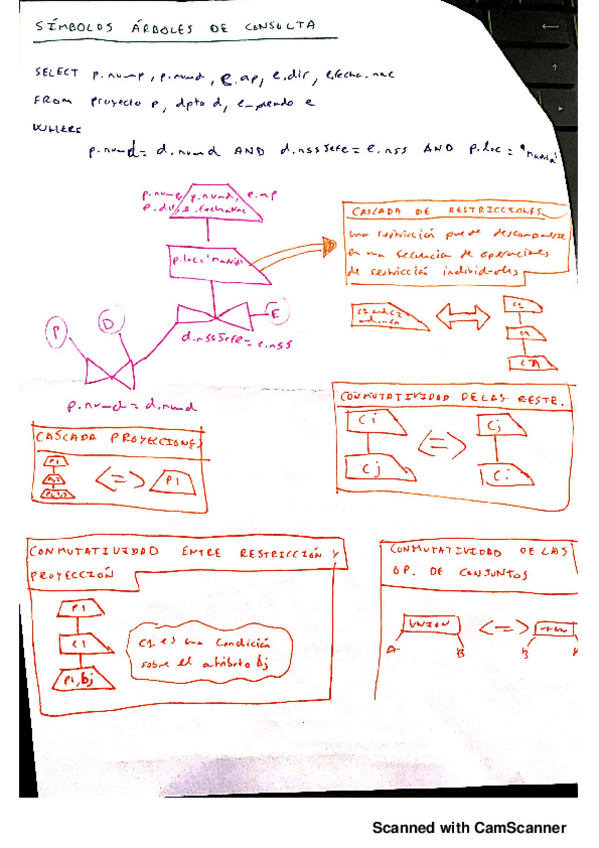 SÍMBOLOS ÁRBOLES DE CONSULTA
SELECT p.nump, p.numd, e.ap, e.dir, e.fecha_nac
FROM proyecto p, dpto d, empleado e
WHERE
p.numd = d.numd AND d.nssJefe = e.nss AND p.loc = "
p.nump, p.numd, e.ap
e.dir, e.fecha
p.loc =
E
d.nssJefe = e.nss
D
P
p.numd = d.numd
CASCADA DE RESTRICCIONES
una restricción puede descomponerse
en una secuencia de operaciones
de restricción individuales
CONMUTATIVIDAD DE LAS RESTR.
Ci
Cj
<=>
Cj
Ci
CASCADA PROYECCIONES
P1
<=>
P1
CONMUTATIVIDAD ENTRE RESTRICCIÓN Y
PROYECCIÓN
P1
C1
P1, bj
C1 es una condición
sobre el atributo bj
CONMUTATIVIDAD DE LAS
OP. DE CONJUNTOS
UNION
<=>
A
B
B
Scanned with CamScanner